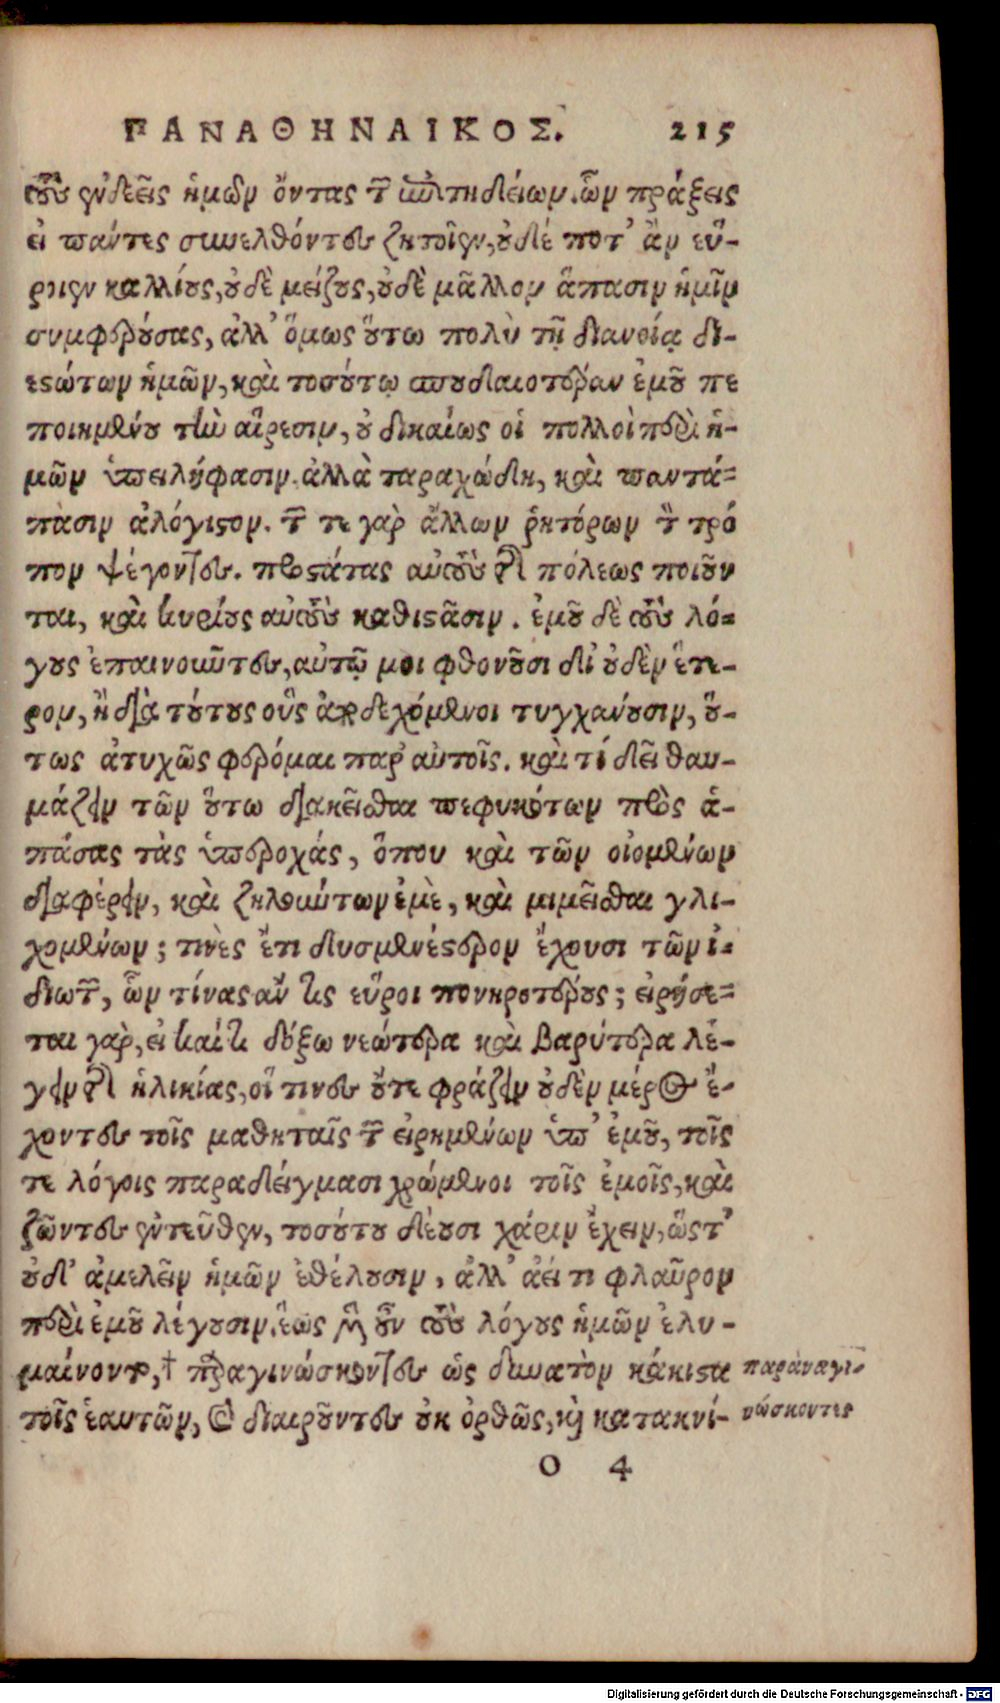 ΠΑΝΑΘΗΝΑΙΚΟΣ. 215
τοὺς ἐνδεεῖς ἡμῶν ὄντας τῶν ἐπιτηδείων. ὧν πράξεις
εἰ πάντες συνελθόντες ζητοῖεν, οὐδέ ποτ' ἂν εὕ-
ροιεν καλλίους, οὐδὲ μείζους, οὐδὲ μᾶλλον ἅπασιν ἡμῖν
συμφερούσας, ἀλλ' ὅμως οὕτω πολὺ τῇ διανοίᾳ δι-
εστώτων ἡμῶν, καὶ τοσούτῳ σπουδαιοτέραν ἐμοῦ πε
ποιημένου τὴν αἵρεσιν, οὐ δικαίως οἱ πολλοὶ περὶ ἡ-
μῶν ὑπειλήφασιν, ἀλλὰ ταραχώδη, καὶ παντά-
πασιν ἀλόγιστον. τῶν τε γὰρ ἄλλων ῥητόρων τὸν τρό
πον ψέγοντες. προστάτας αὐτοὺς τῆς πόλεως ποιοῦν
ται, καὶ κυρίους αὐτοὺς καθιστᾶσιν. ἐμοῦ δὲ τοὺς λό-
γους ἐπαινοῦντες, αὐτῷ μοι φθονοῦσι δι' οὐδὲν ἕτε-
ρον, ἢ διὰ τούτους οὓς ἀποδεχόμενοι τυγχάνουσιν, οὕ-
τως ἀτυχῶς φέρομαι παρ' αὐτοῖς. καὶ τί δεῖ θαυ-
μάζειν τῶν οὕτω διακεῖσθαι πεφυκότων πρὸς ἁ-
πάσας τὰς ὑπεροχάς, ὅπου καὶ τῶν οἰομένων
διαφέρειν, καὶ ζηλούντων ἐμὲ, καὶ μιμεῖσθαι γλι-
χομένων; τινὲς ἔτι δυσμενέστερον ἔχουσι τῶν ἰ-
διωτῶν, ὧν τίνας ἄν τις εὕροι πονηροτέρους; εἰρήσε-
ται γὰρ, εἰ καί τισι δόξω νεώτερα καὶ βαρύτερα λέ-
γειν τῆς ἡλικίας, οἵ τινες οὔτε φράζειν οὐδὲν μέρος ἔ-
χοντες τοῖς μαθηταῖς τῶν εἰρημένων ὑπ' ἐμοῦ, τοῖς
τε λόγοις παραδείγμασι χρώμενοι τοῖς ἐμοῖς, καὶ
ζῶντες ἐντεῦθεν, τοσούτου δέουσι χάριν ἔχειν, ὥστ'
οὐδ' ἀμελεῖν ἡμῶν ἐθέλουσιν, ἀλλ' ἀεί τι φλαῦρον
περὶ ἐμοῦ λέγουσιν. ἕως μὲν οὖν τοὺς λόγους ἡμῶν ἐλυ-
μαίνοντο, † παραγινώσκοντες ὡς δυνατὸν κάκιστα παραναγι-
τοῖς ἑαυτῶν, καὶ διαιροῦντες οὐκ ὀρθῶς, καὶ κατακνί- νώσκοντες
O 4
Digitalisierung gefördert durch die Deutsche Forschungsgemeinschaft - DFG